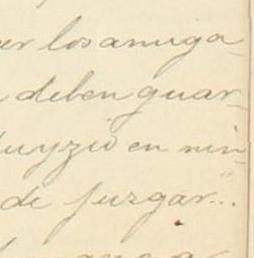 er los amiga-
deben guar-
uyzio en nin-
de juzgar"..